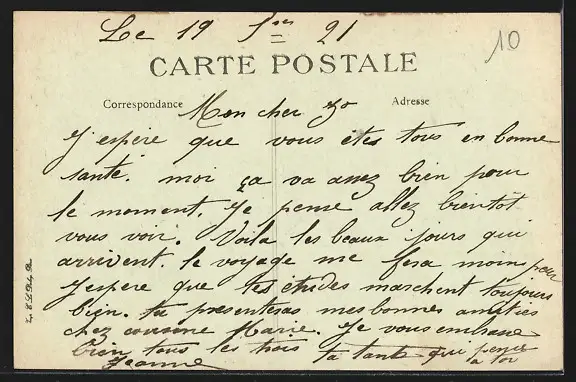 Le 19 21
10
CARTE POSTALE
Correspondance
Adresse
Mon cher
J'espère que vous êtes tous en bonne
santé. moi ça va assez bien pour
le moment. Je pense allez bientôt
vous voir. Voilà les beaux jours qui
arrivent. le voyage me fera moin peur
J'espère que tes études marchent toujours
bien. tu présenteras mes bonnes amitiés
chez cousine Marie. Je vous embrasse
bien tous les trois ta tante qui pense
Jeanne à toi